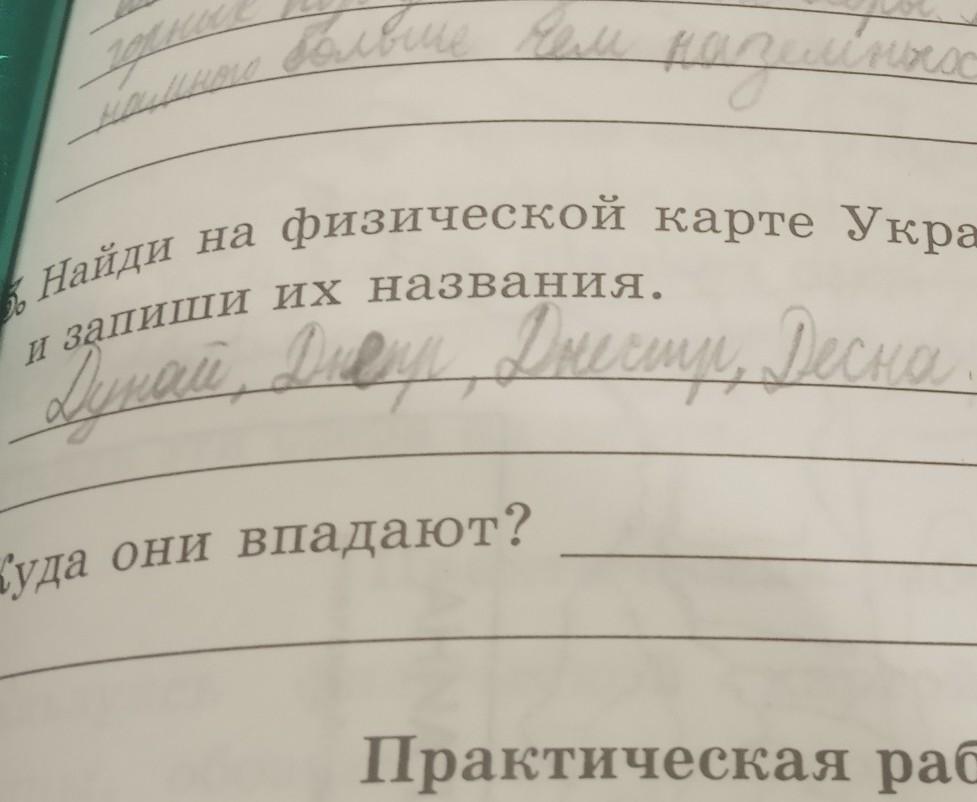 горные
намного больше чем наземных
5. Найди на физической карте Укра
и запиши их названия.
Дунай, Днепр, Днестр, Десна
Куда они впадают?
Практическая раб